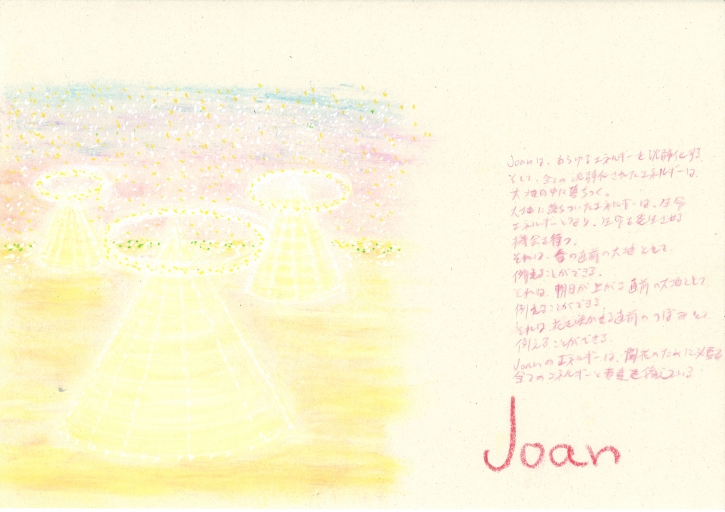 Joanは、あらゆるエネルギーを活静化する
そして、全ての活静化されたエネルギーは、
大地の中に落ちつく。
大地に落ちついたエネルギーは、生命
エネルギーとなり、生命を芽生させる
機会を待つ。
それは、春の直前の大地として
例えることができる。
それは、朝日が上がる直前の大地として
例えることができる。
それは、花を咲かせる直前のつぼみとして
例えることができる。
Joanのエネルギーは、開花のために必要な
全てのエネルギーと要素を備えている
Joan